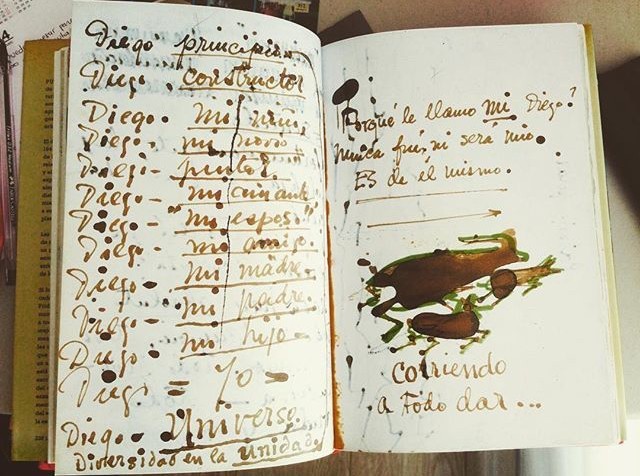 Diego principio
Diego. constructor
Diego. mi niño.
Diego. mi novio.
Diego. pintor.
Diego - mi amante.
Diego - "mi esposo"
Diego - mi amigo.
Diego - mi madre.
Diego - mi padre.
Diego - mi hijo -
Diego = yo =
Diego - Universo.
Diversidad en la unidad.
Porqué le llamo mi Diego?
nunca fué, ni será mio.
ES de él mismo.
corriendo
a todo dar...